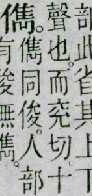 部此省其上
聲也。而兖切十
儁。
儁同俊。人部
有俊無儁。